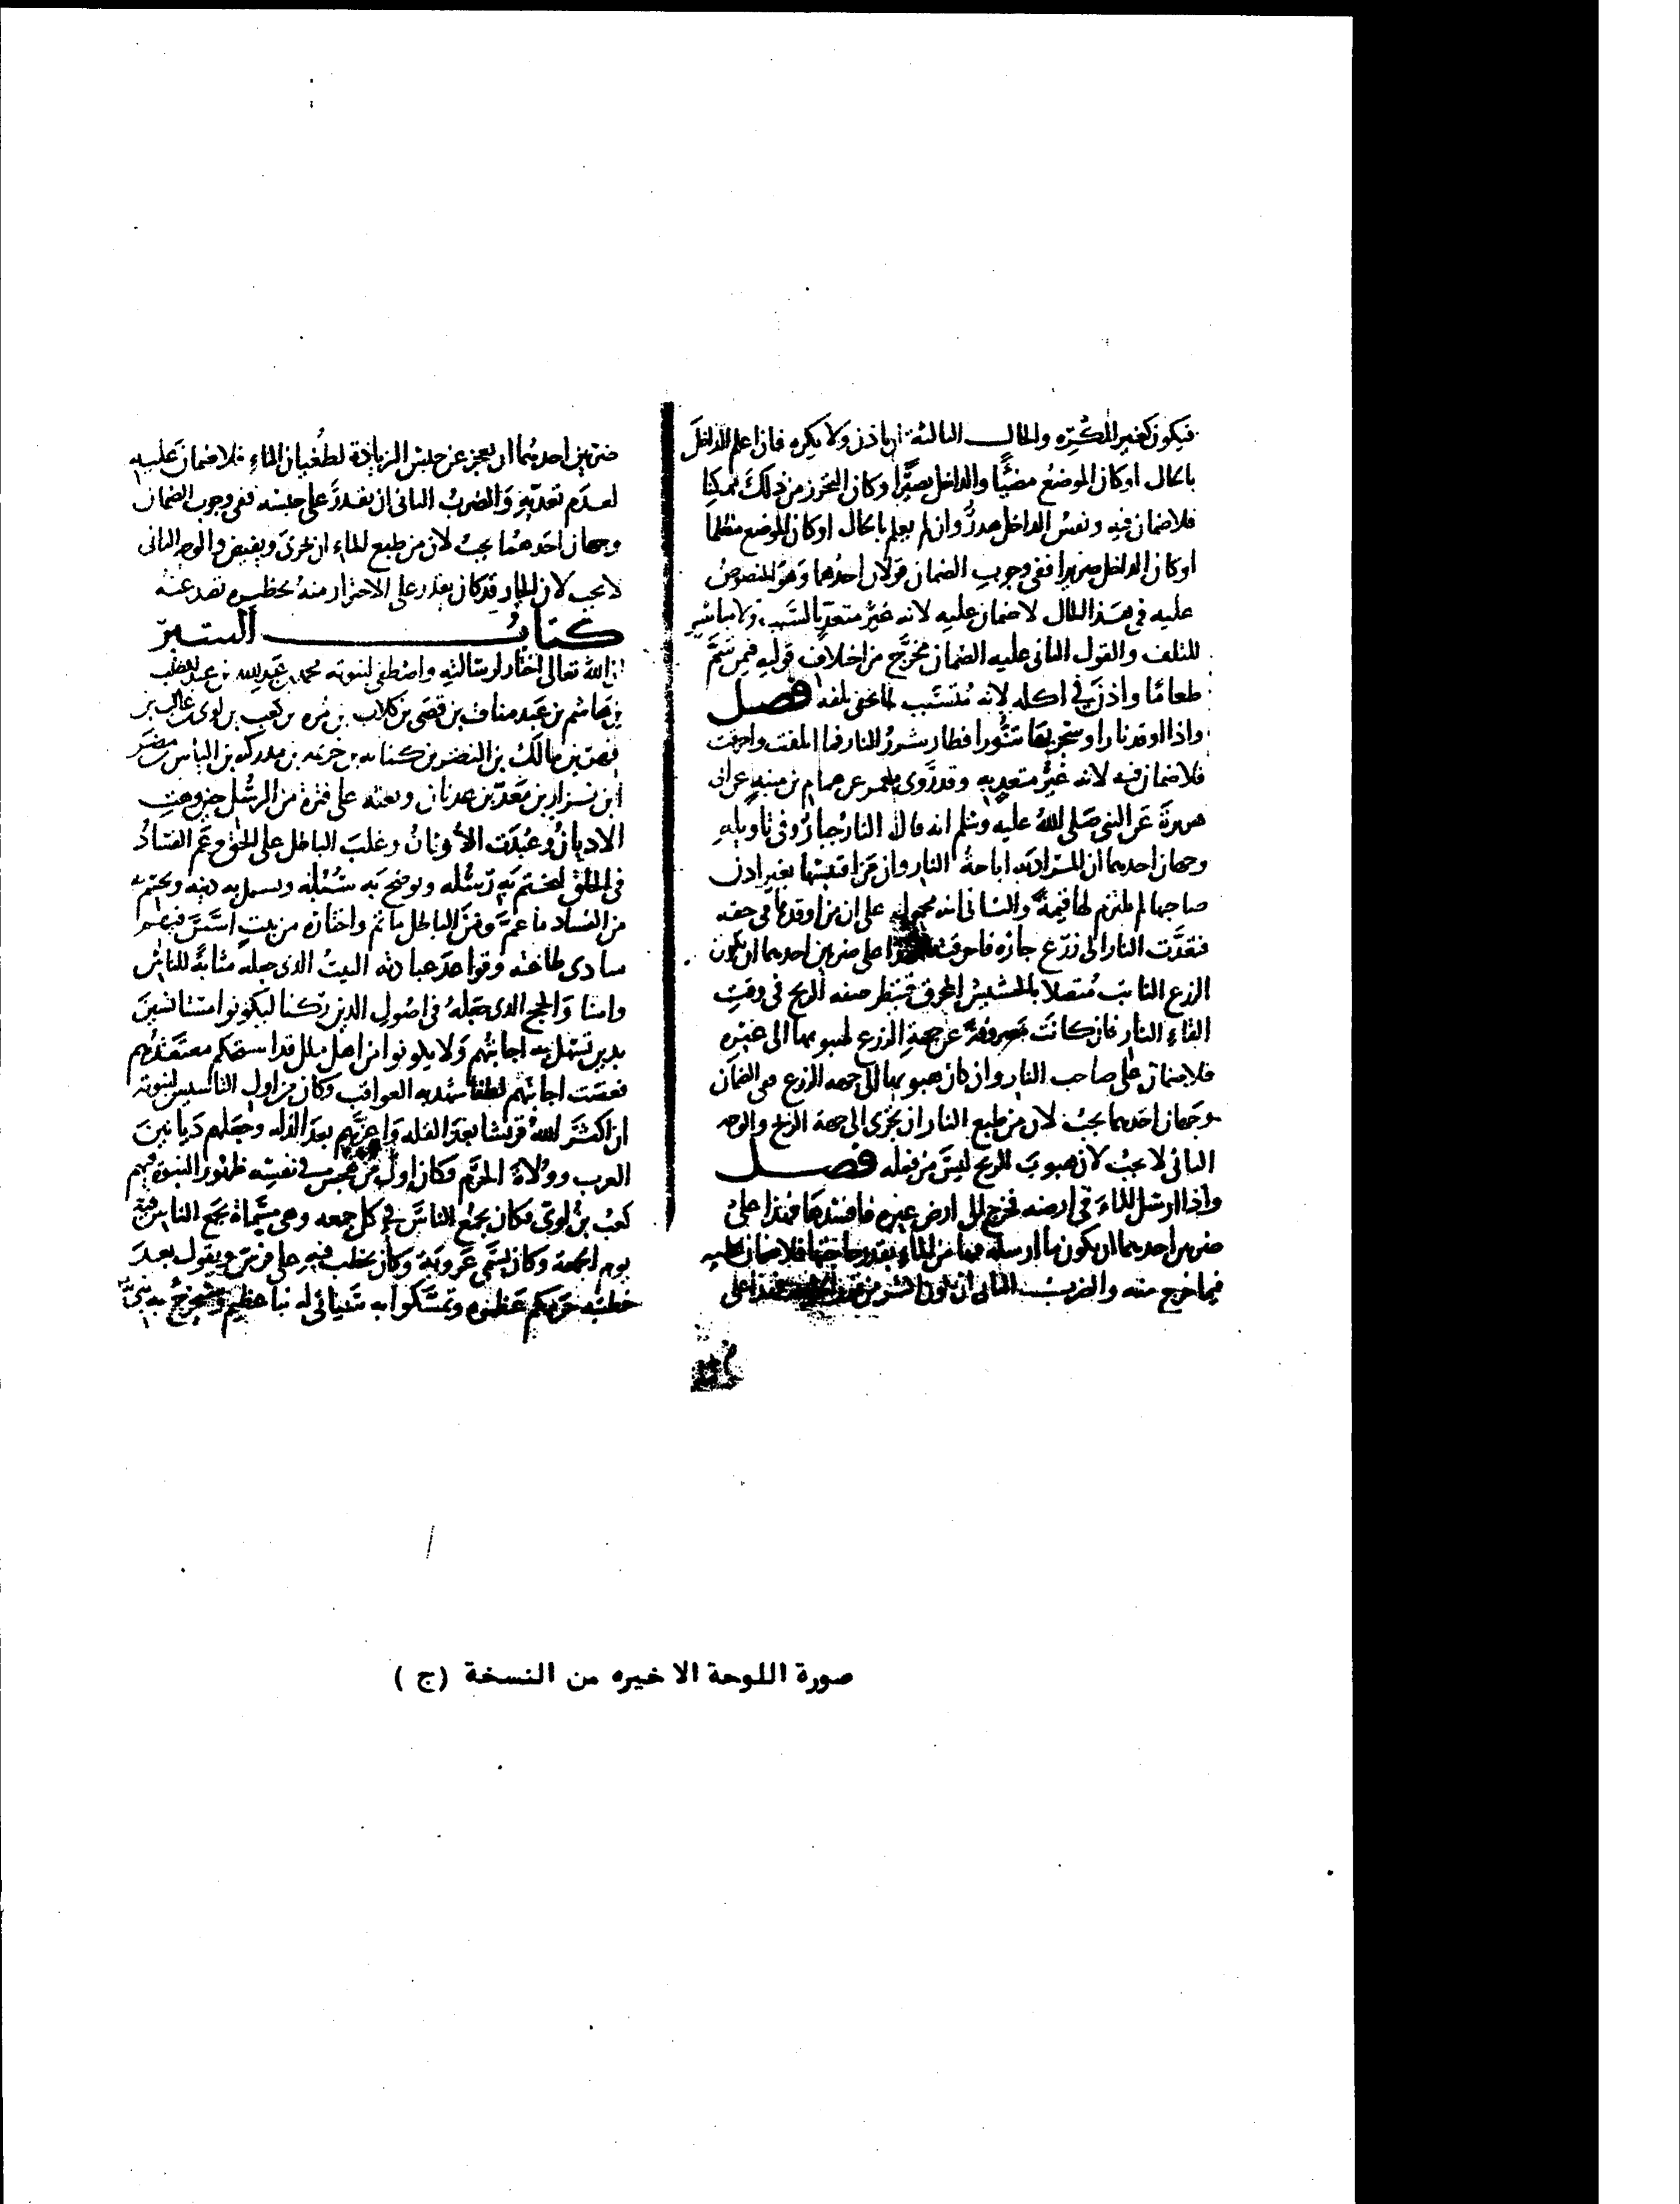 فيكون كغير المكره والحال الثالثة ان ياذن ولا يكره فان اعلم الداخل
بالحال او كان الموضع مضيًا والداخل بصيرًا وكان التحرز من ذلك ممكنا
فلا ضمان فيه ونفس الداخل هدر وان لم يعلم بالحال او كان الموضع مظلما
او كان الداخل ضريرا ففي وجوب الضمان قولان احدهما وهو المنصوص
عليه في هذا لا ضمان عليه لانه غير متعد بالسبب ولا مباشر
للتلف والقول الثاني عليه الضمان مخرج من اختلاف قوليه فيمن سمَّ
طعامًا واذن في اكله لانه متسبب لما خفي تلفه فصل
واذا اوقد نارا وسجر بها تنورا فطار شرر النار فما اتلفت واحرقت
فلا ضمان فيه لانه غير متعد به وقد روى معمر عن همام بن منبه عن ابي
هريرة عن النبي صلى الله عليه وسلم انه قال النار جبار وفي تاويله
وجهان احدهما ان المراد به اباحة النار وان من اقتبسها بغير اذن
صاحبها لم يلتزم لها قيمة والثاني انه محمول على ان من اوقدها في حقه
فتعدت النار الى زرع جاره فاحرقته على ضربين احدهما ان يكون
الزرع النابت متصلا بالحشيش المحرق فينظر صفه الريح في وقت
القاء النار فان كانت مصروفة عن جهة الزرع لهبوبها الى غيره
فلا ضمان على صاحب النار وان كان هبوبها الى جهه الزرع ففي الضمان
وجهان احدهما يجب لان من طبع النار ان تجري الى جهة الريح والوجه
الثاني لا يجب لان هبوب الريح ليس من فعله فصل
واذا ارسل الماء في ارضه فخرج الى ارض غيره فافسدها فهذا على
ضربين احدهما ان يكون ما ارسله فيها من الماء بقدر حاجتها فلا ضمان عليه
فيما خرج منه والضرب الثاني ان يكون اكثر من قدر فهذا على
ضربين احدهما ان يعجز عن حبس الزيادة لطغيان الماء فلا ضمان عليه
لعدم تعديه والضرب الثاني ان يقدر على حبسه ففي وجوب الضمان
وجهان احدهما يجب لان من طبع الماء ان يجري ويفيض والوجه الثاني
لا يجب لان الجار قد كان يقدر على الاحتراز منه بحظيره تصد عنه
كتاب السير
ان الله تعالى اختار لرسالته واصطفى لنبوته محمد بن عبد الله بن عبد المطلب
بن هاشم بن عبد مناف بن قصي بن كلاب بن مره بن كعب بن لوي بن غالب بن
فهر بن مالك بن النضر بن كنانه بن خزيمه بن مدركه بن الياس بن مضر
ابن نزار بن معد بن عدنان وبعثه على فترة من الرسل حين وهت
الاديان وعبدت الاوثان وغلب الباطل على الحق وعم الفساد
في الخلق ليختم به رسله ويوضح به سبله ويستكمل به دينه ويحسم به
من الفساد ما عم ومن الباطل ما تم واختاره من بيت اسس فيهم
مبادى طاعته وقواعد عبادته البيت الذي جعله مثابة للناس
وامنا والحج الذي جعله في اصول الدين ركنا ليكونوا مستانسين
بدين تسهل به اجابتهم ولا يكونوا من اهل ملل قد استحكم معتقدهم
فصعبت اجابتهم لطفا شهد به العواقب وكان من اول التاسيس لنبوته
ان كثر الله قريشا بعد القله واعزهم بعد الذله وجعلهم ديانين
العرب وولاة الحرم فكان اول من هجس في نفسه ظهور النبوة فيهم
كعب بن لوي فكان يجمع الناس في كل جمعه وهي مسماة بجمع الناس فيه
يوم الجمعة وكان يسمى عروبة وكان يخطب فيه على قريش ويقول بعد
خطبته حرمكم عظموه وتمسكوا به سياتي له نبا عظيم وسيخرج به نبي
صورة اللوحة الاخيره من النسخة (ج)